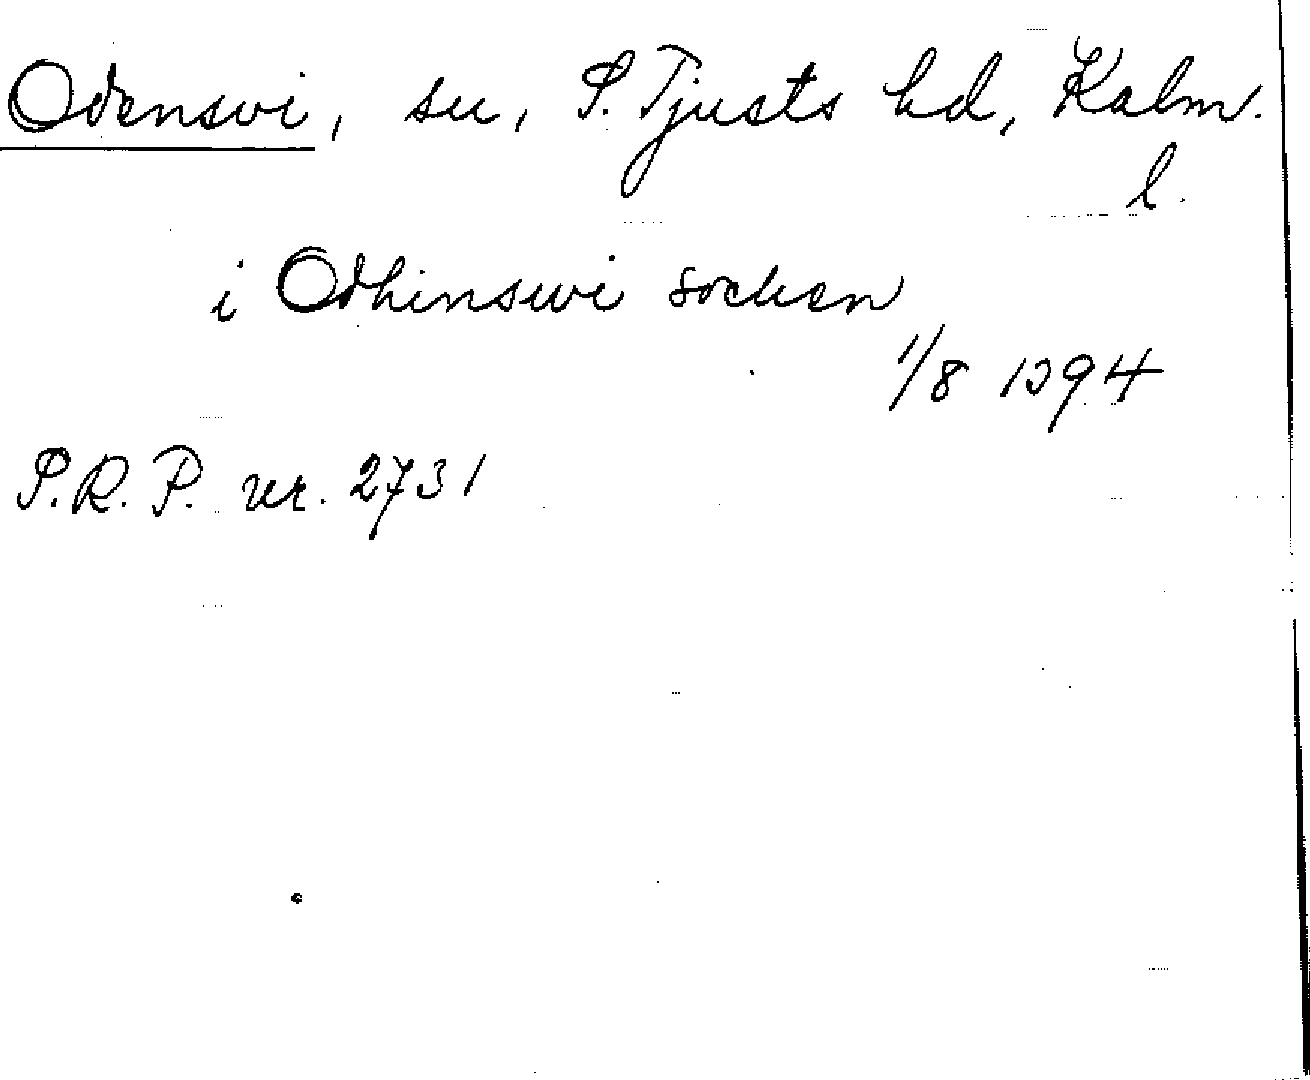 Odensvi, sn, S. Tjusts hd, Kalm.
l.
i Odhinswi socken
1/8 1394
S.R.P. nr. 2731